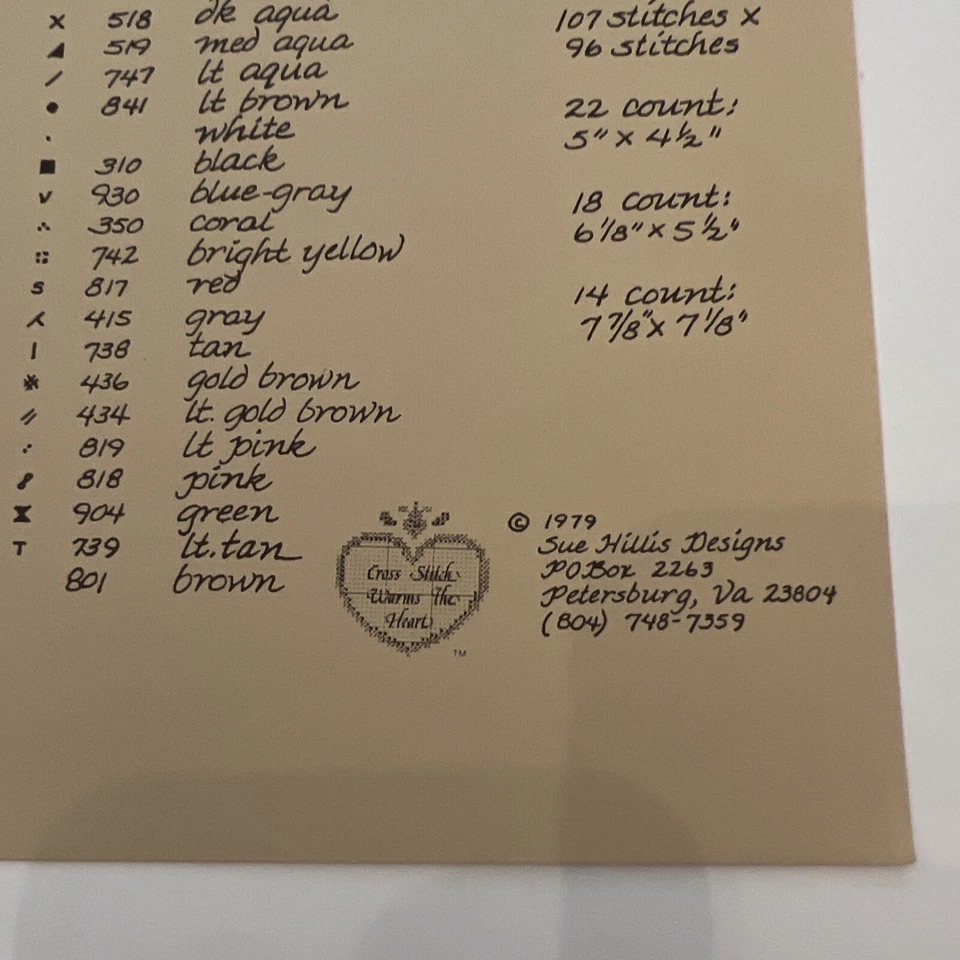 x 518 dk aqua
◢ 519 med aqua
/ 747 lt aqua
● 841 lt brown
· white
■ 310 black
v 930 blue-gray
∴ 350 coral
∷ 742 bright yellow
s 817 red
⅄ 415 gray
| 738 tan
⋇ 436 gold brown
// 434 lt. gold brown
⋰ 819 lt pink
8 818 pink
⧗ 904 green
T 739 lt. tan
801 brown
107 stitches x
96 stitches
22 count:
5" x 4½"
18 count:
6 1/8" x 5½"
14 count:
7 7/8" x 7 1/8"
Cross Stitch
Warms The
Heart
TM
© 1979
Sue Hillis Designs
PO Box 2263
Petersburg, Va 23804
(804) 748-7359